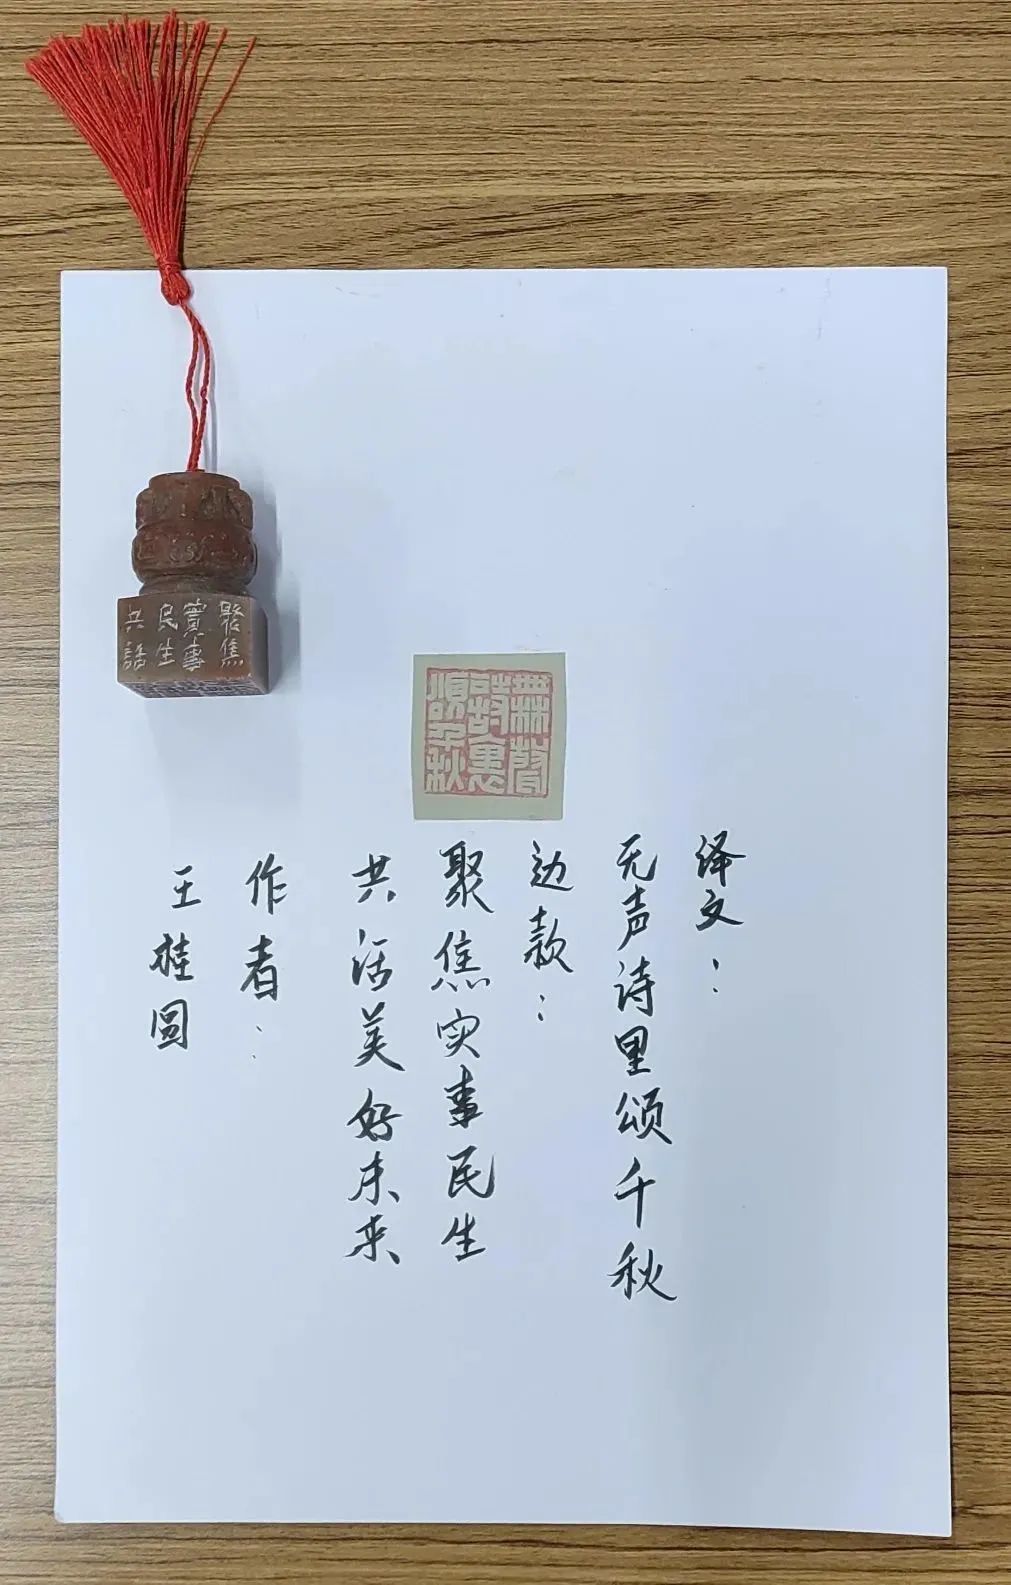 聚焦
實事
民生
共話
無聲
詩裏
頌千秋
译文：
无声诗里颂千秋
边款：
聚焦实事民生
共话美好未来
作者：
王桂圆